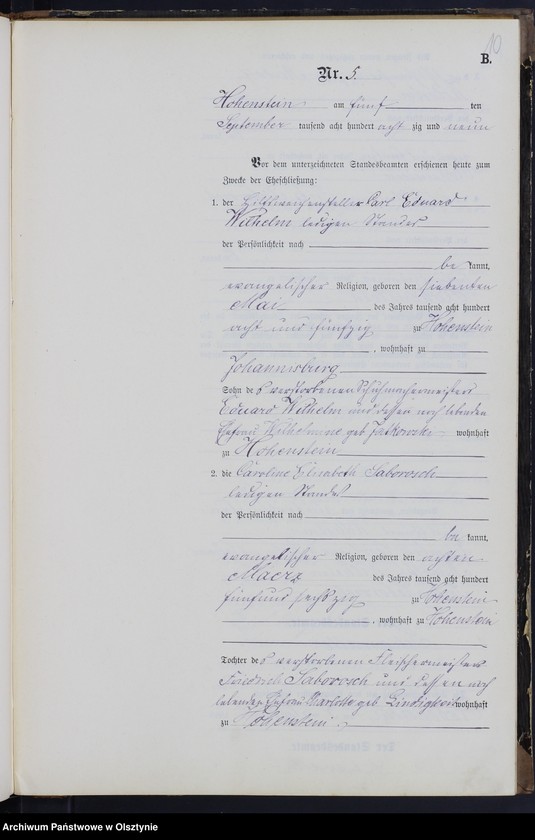 10
B.
Nr. 5.
Hohenstein am fünf ten
September tausend acht hundert acht zig und neun
Vor dem unterzeichneten Standesbeamten erschienen heute zum
Zwecke der Eheschließung:
1. der Hilfsweichensteller Carl Eduard
Wilhelm ledigen Standes
der Persönlichkeit nach
be kannt,
evangelischer Religion, geboren den siebenten
Mai des Jahres tausend acht hundert
acht und fünfzig zu Hohenstein
, wohnhaft zu
Johannisburg
Sohn des verstorbenen Schuhmachermeisters
Eduard Wilhelm und dessen noch lebenden
Ehefrau Wilhelmine geb. wohnhaft
zu Hohenstein
2. die Caroline Elisabeth Saborosch
ledigen Standes
der Persönlichkeit nach
be kannt,
evangelischer Religion, geboren den achten
Maerz des Jahres tausend acht hundert
fünf und sechszig zu Hohenstein
, wohnhaft zu Hohenstein
Tochter des verstorbenen Fleischermeisters
Friedrich Saborosch und dessen noch
lebenden Ehefrau Charlotte geb. Lindigkeit wohnhaft
zu Hohenstein
Archiwum Państwowe w Olsztynie